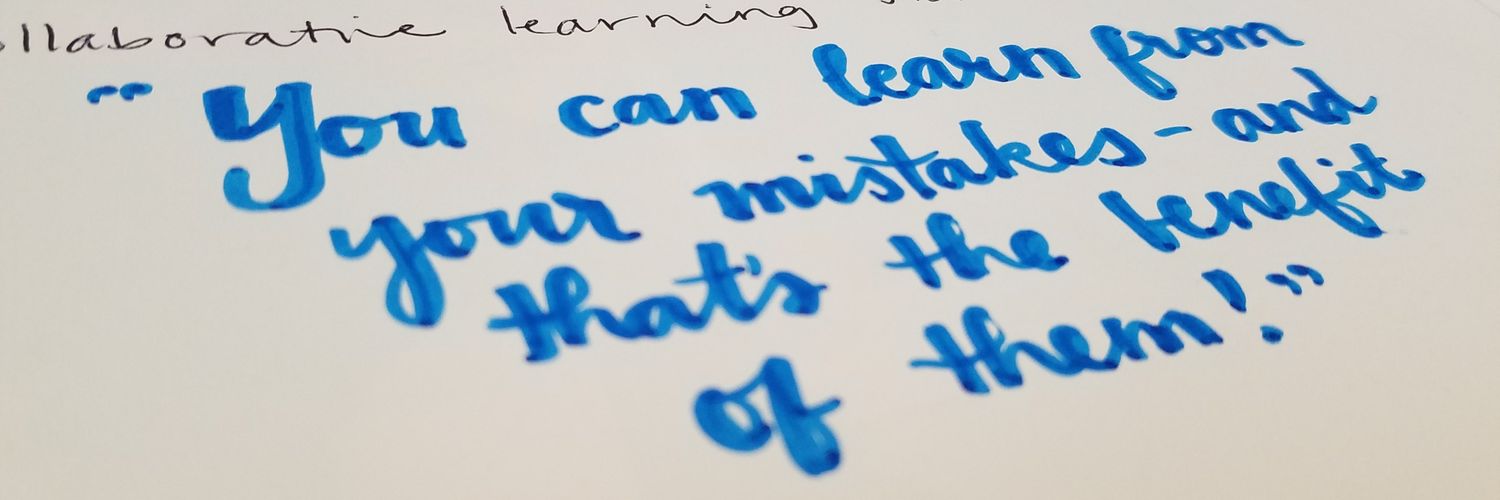 learning
“You can learn from
your mistakes - and
that's the benefit
of them!”